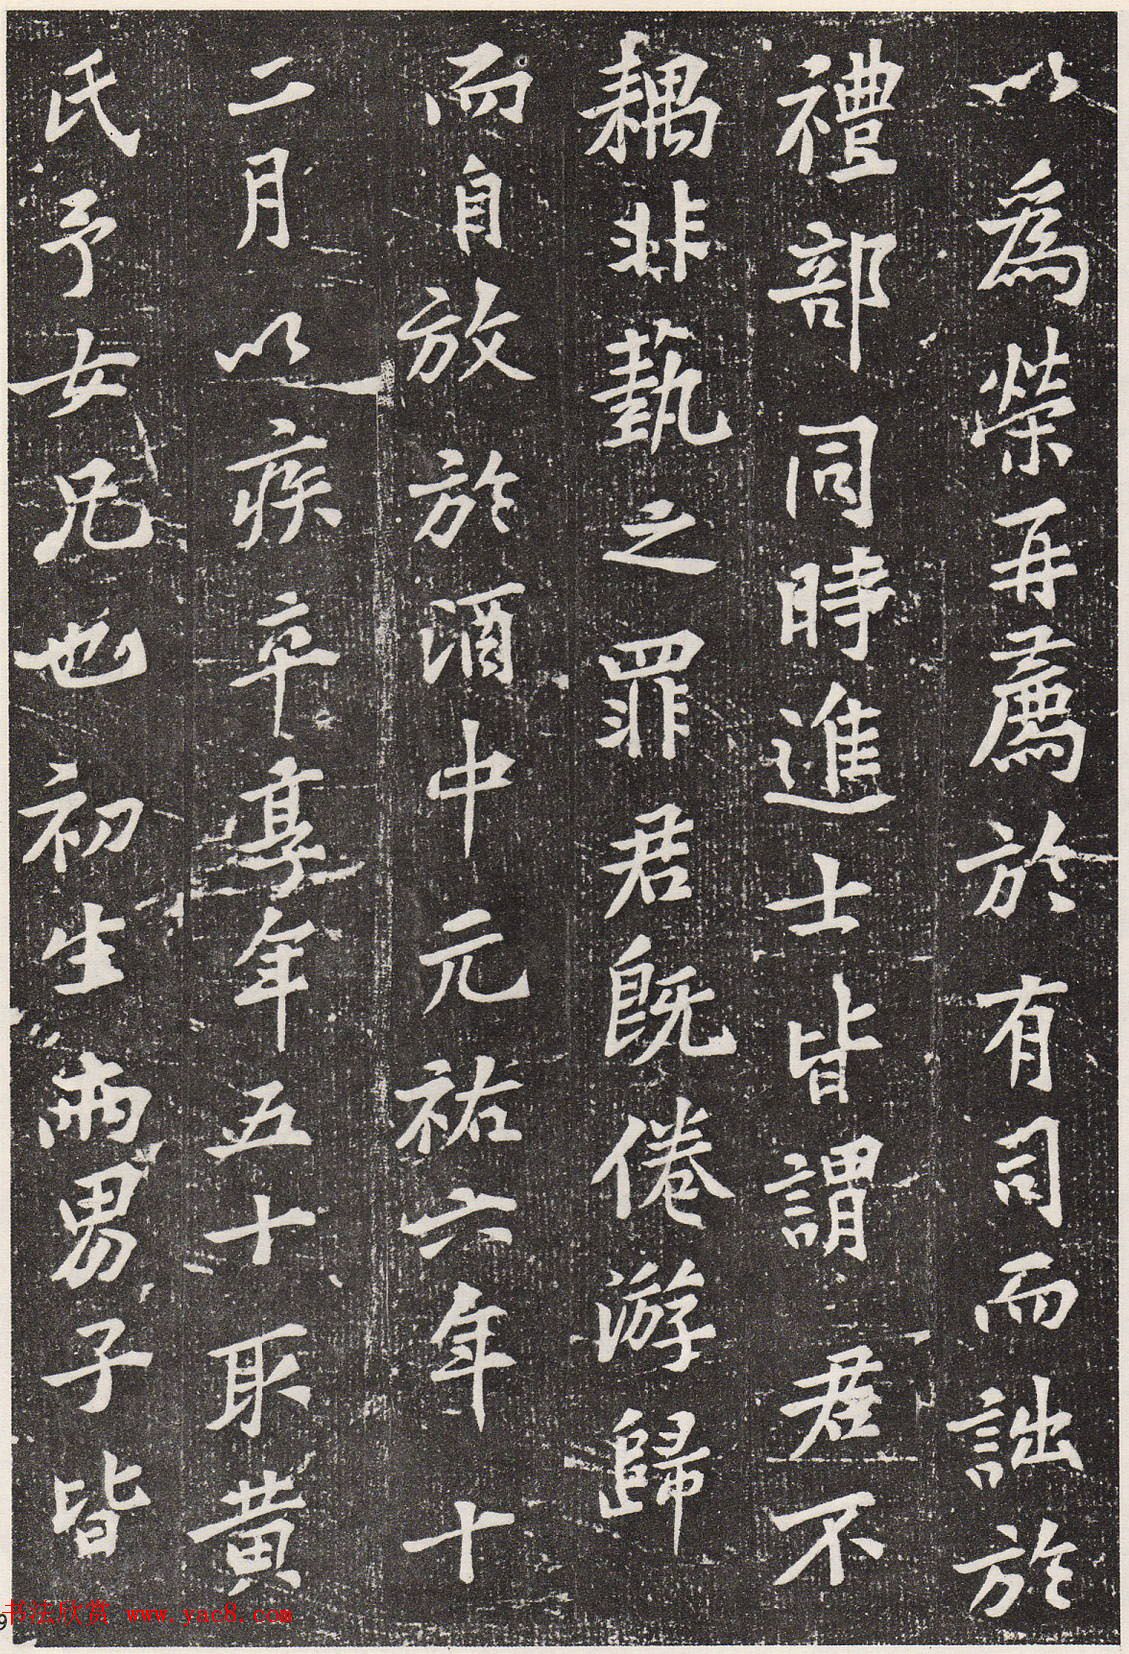 以爲榮再薦於有司而詘於
禮部同時進士皆謂君不
耦非藝之罪君既倦游歸
而自放於酒中元祐六年十
二月以疾卒享年五十取黄
氏予女兄也初生兩男子皆
9
书法欣赏 www.yac8.com